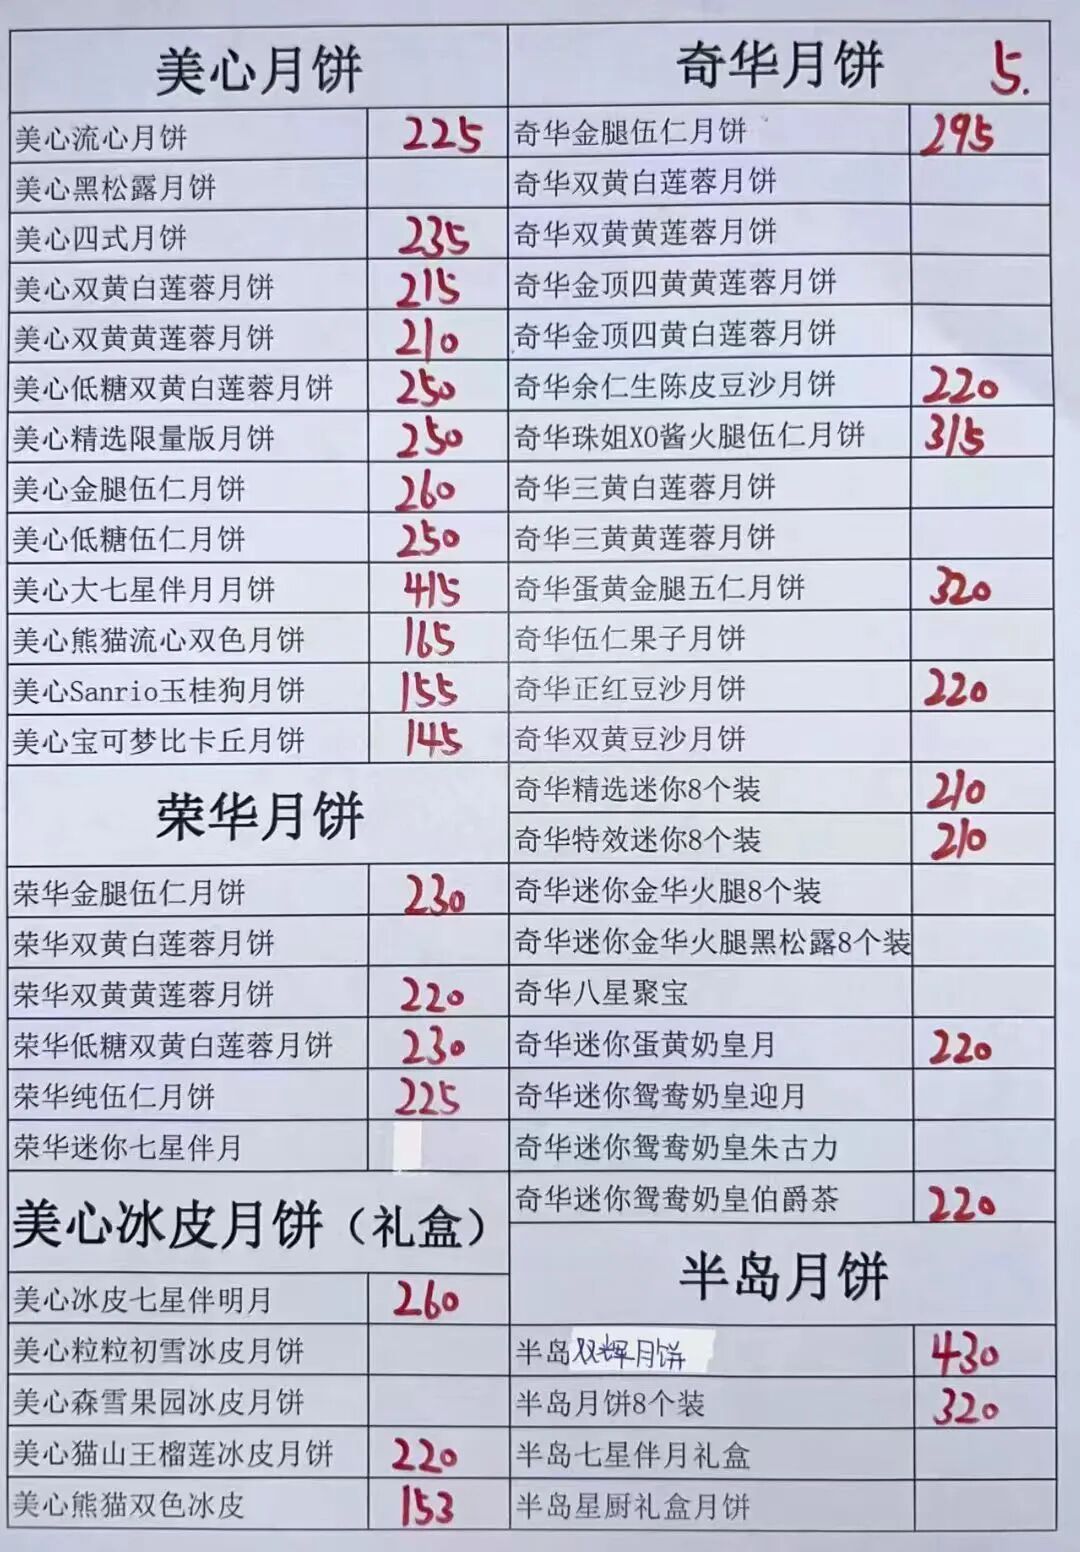 美心月饼
美心流心月饼 225
美心黑松露月饼
美心四式月饼 235
美心双黄白莲蓉月饼 215
美心双黄黄莲蓉月饼 210
美心低糖双黄白莲蓉月饼 250
美心精选限量版月饼 250
美心金腿伍仁月饼 260
美心低糖伍仁月饼 250
美心大七星伴月月饼 415
美心熊猫流心双色月饼 165
美心Sanrio玉桂狗月饼 155
美心宝可梦比卡丘月饼 145
荣华月饼
荣华金腿伍仁月饼 230
荣华双黄白莲蓉月饼
荣华双黄黄莲蓉月饼 220
荣华低糖双黄白莲蓉月饼 230
荣华纯伍仁月饼 225
荣华迷你七星伴月
美心冰皮月饼（礼盒）
美心冰皮七星伴明月 260
美心粒粒初雪冰皮月饼
美心森雪果园冰皮月饼
美心猫山王榴莲冰皮月饼 220
美心熊猫双色冰皮 153
奇华月饼 5.
奇华金腿伍仁月饼 295
奇华双黄白莲蓉月饼
奇华双黄黄莲蓉月饼
奇华金顶四黄黄莲蓉月饼
奇华金顶四黄白莲蓉月饼
奇华余仁生陈皮豆沙月饼 220
奇华珠姐XO酱火腿伍仁月饼 315
奇华三黄白莲蓉月饼
奇华三黄黄莲蓉月饼
奇华蛋黄金腿五仁月饼 320
奇华伍仁果子月饼
奇华正红豆沙月饼 220
奇华双黄豆沙月饼
奇华精选迷你8个装 210
奇华特效迷你8个装 210
奇华迷你金华火腿8个装
奇华迷你金华火腿黑松露8个装
奇华八星聚宝
奇华迷你蛋黄奶皇月 220
奇华迷你鸳鸯奶皇迎月
奇华迷你鸳鸯奶皇朱古力
奇华迷你鸳鸯奶皇伯爵茶 220
半岛月饼
半岛双辉月饼 430
半岛月饼8个装 320
半岛七星伴月礼盒
半岛星厨礼盒月饼